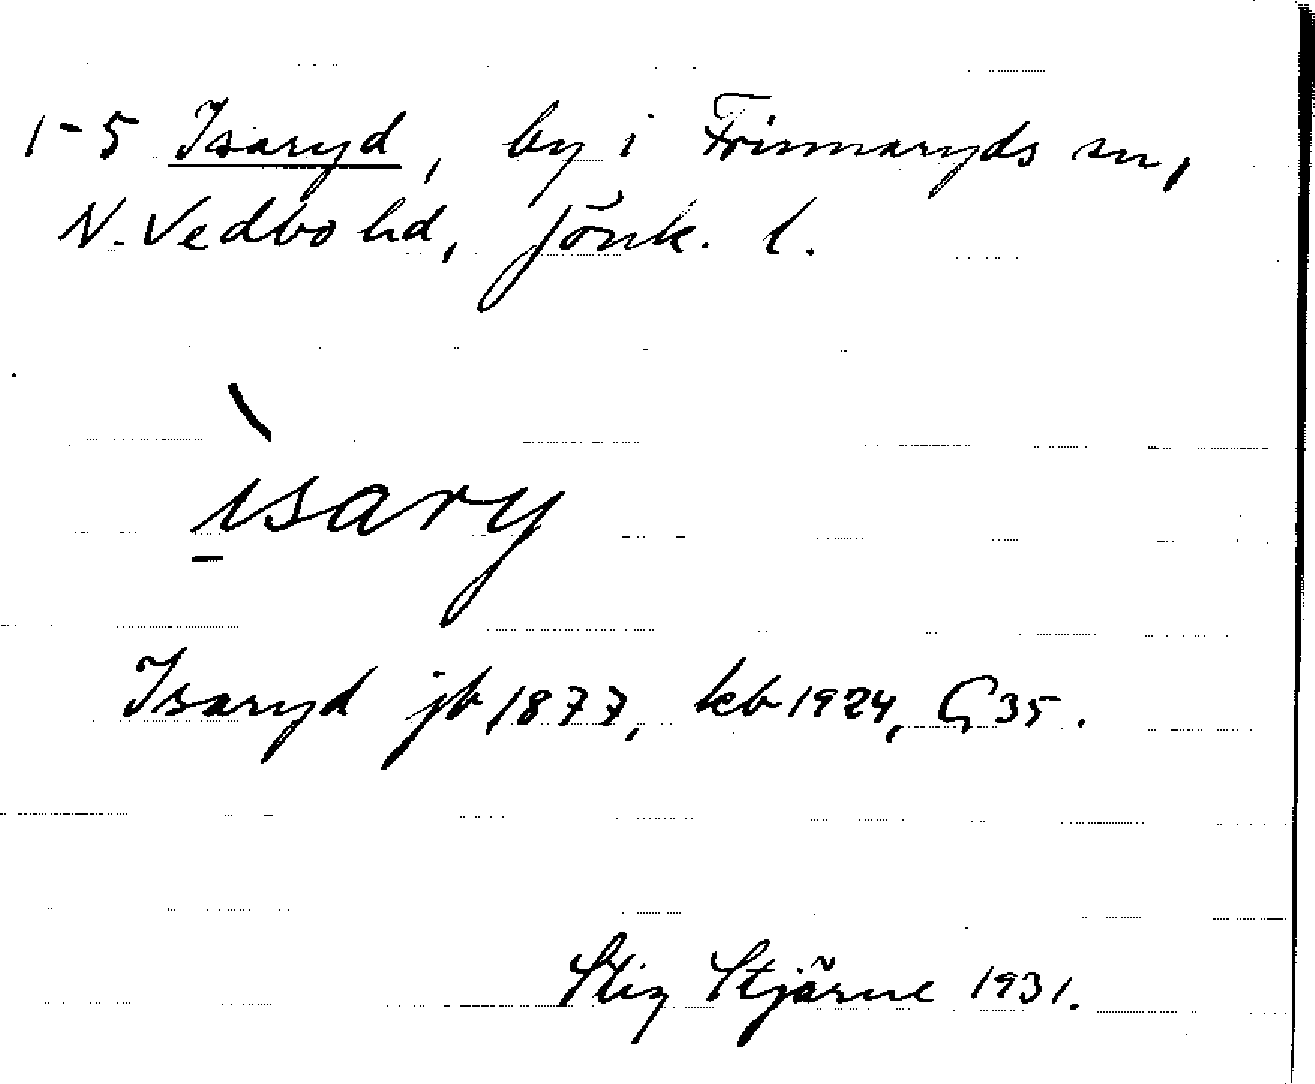 1-5 Isaryd, by i Frinnaryds sn,
N. Vedbo hd, Jönk. l.
ìsary
Isaryd jb 1877, kb 1924, G 35.
Stig Stjärne 1931.